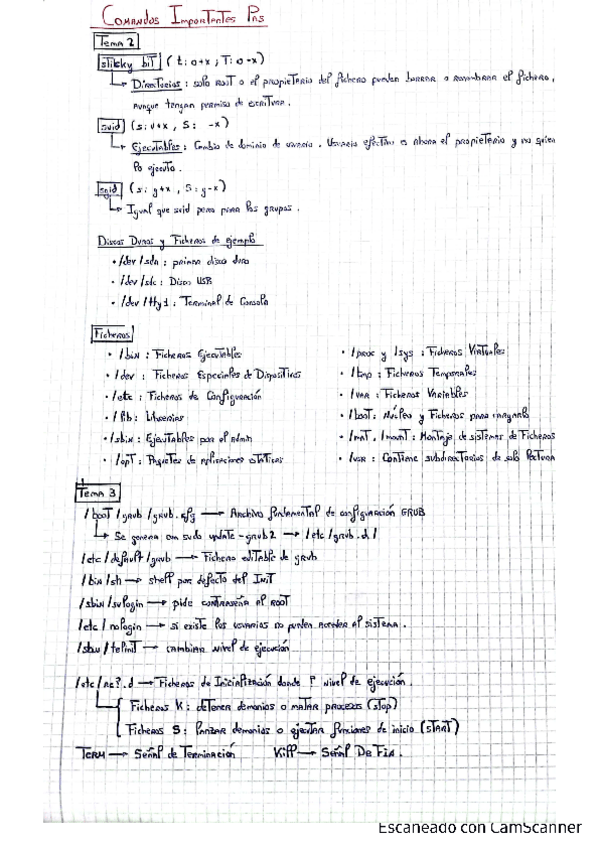 Comandos Importantes Pas
Tema 2
sticky bit (t: o+x ; T: o-x)
Directorios: solo root o el propietario del fichero pueden borrar o renombrar el fichero,
aunque tengan permiso de escritura.
suid (s: u+x, S: -x)
Ejecutables: Cambio de dominio de usuario. Usuario efectivo es ahora el propietario y no quien
lo ejecuta.
sgid (s: g+x, S: g-x)
Igual que suid pero para los grupos.
Discos Duros y Ficheros de ejemplo
• /dev/sda : primer disco duro
• /dev/sdc : Disco USB
• /dev/tty1 : Terminal de Consola
Ficheros
• /bin : Ficheros Ejecutables
• /dev : Ficheros Especiales de Dispositivos
• /etc : Ficheros de Configuración
• /lib : Librerias
• /sbin : Ejecutables por el admin
• /opt : Paquetes de aplicaciones estáticas
• /proc y /sys : Ficheros Virtuales
• /tmp : Ficheros Temporales
• /var : Ficheros Variables
• /boot : Núcleo y Ficheros para cargarlo
• /mnt, /mount : Montaje de sistemas de Ficheros
• /usr : Contiene subdirectorios de solo lectura
Tema 3
/boot/grub/grub.cfg → Archivo fundamental de configuración GRUB
Se genera con sudo update-grub2 → /etc/grub.d/
/etc/default/grub → Fichero editable de grub
/bin/sh → shell por defecto del INIT
/sbin/sulogin → pide contraseña al ROOT
/etc/nologin → si existe los usuarios no pueden acceder al sistema.
/sbin/telinit → cambiar nivel de ejecución
/etc/rc?.d → Ficheros de Inicialización donde ? nivel de ejecución.
Ficheros K: detener demonios o matar procesos (stop)
Ficheros S: lanzar demonios o ejecutar funciones de inicio (START)
Term → Señal de Terminación Kill → Señal De Fin.
Escaneado con CamScanner